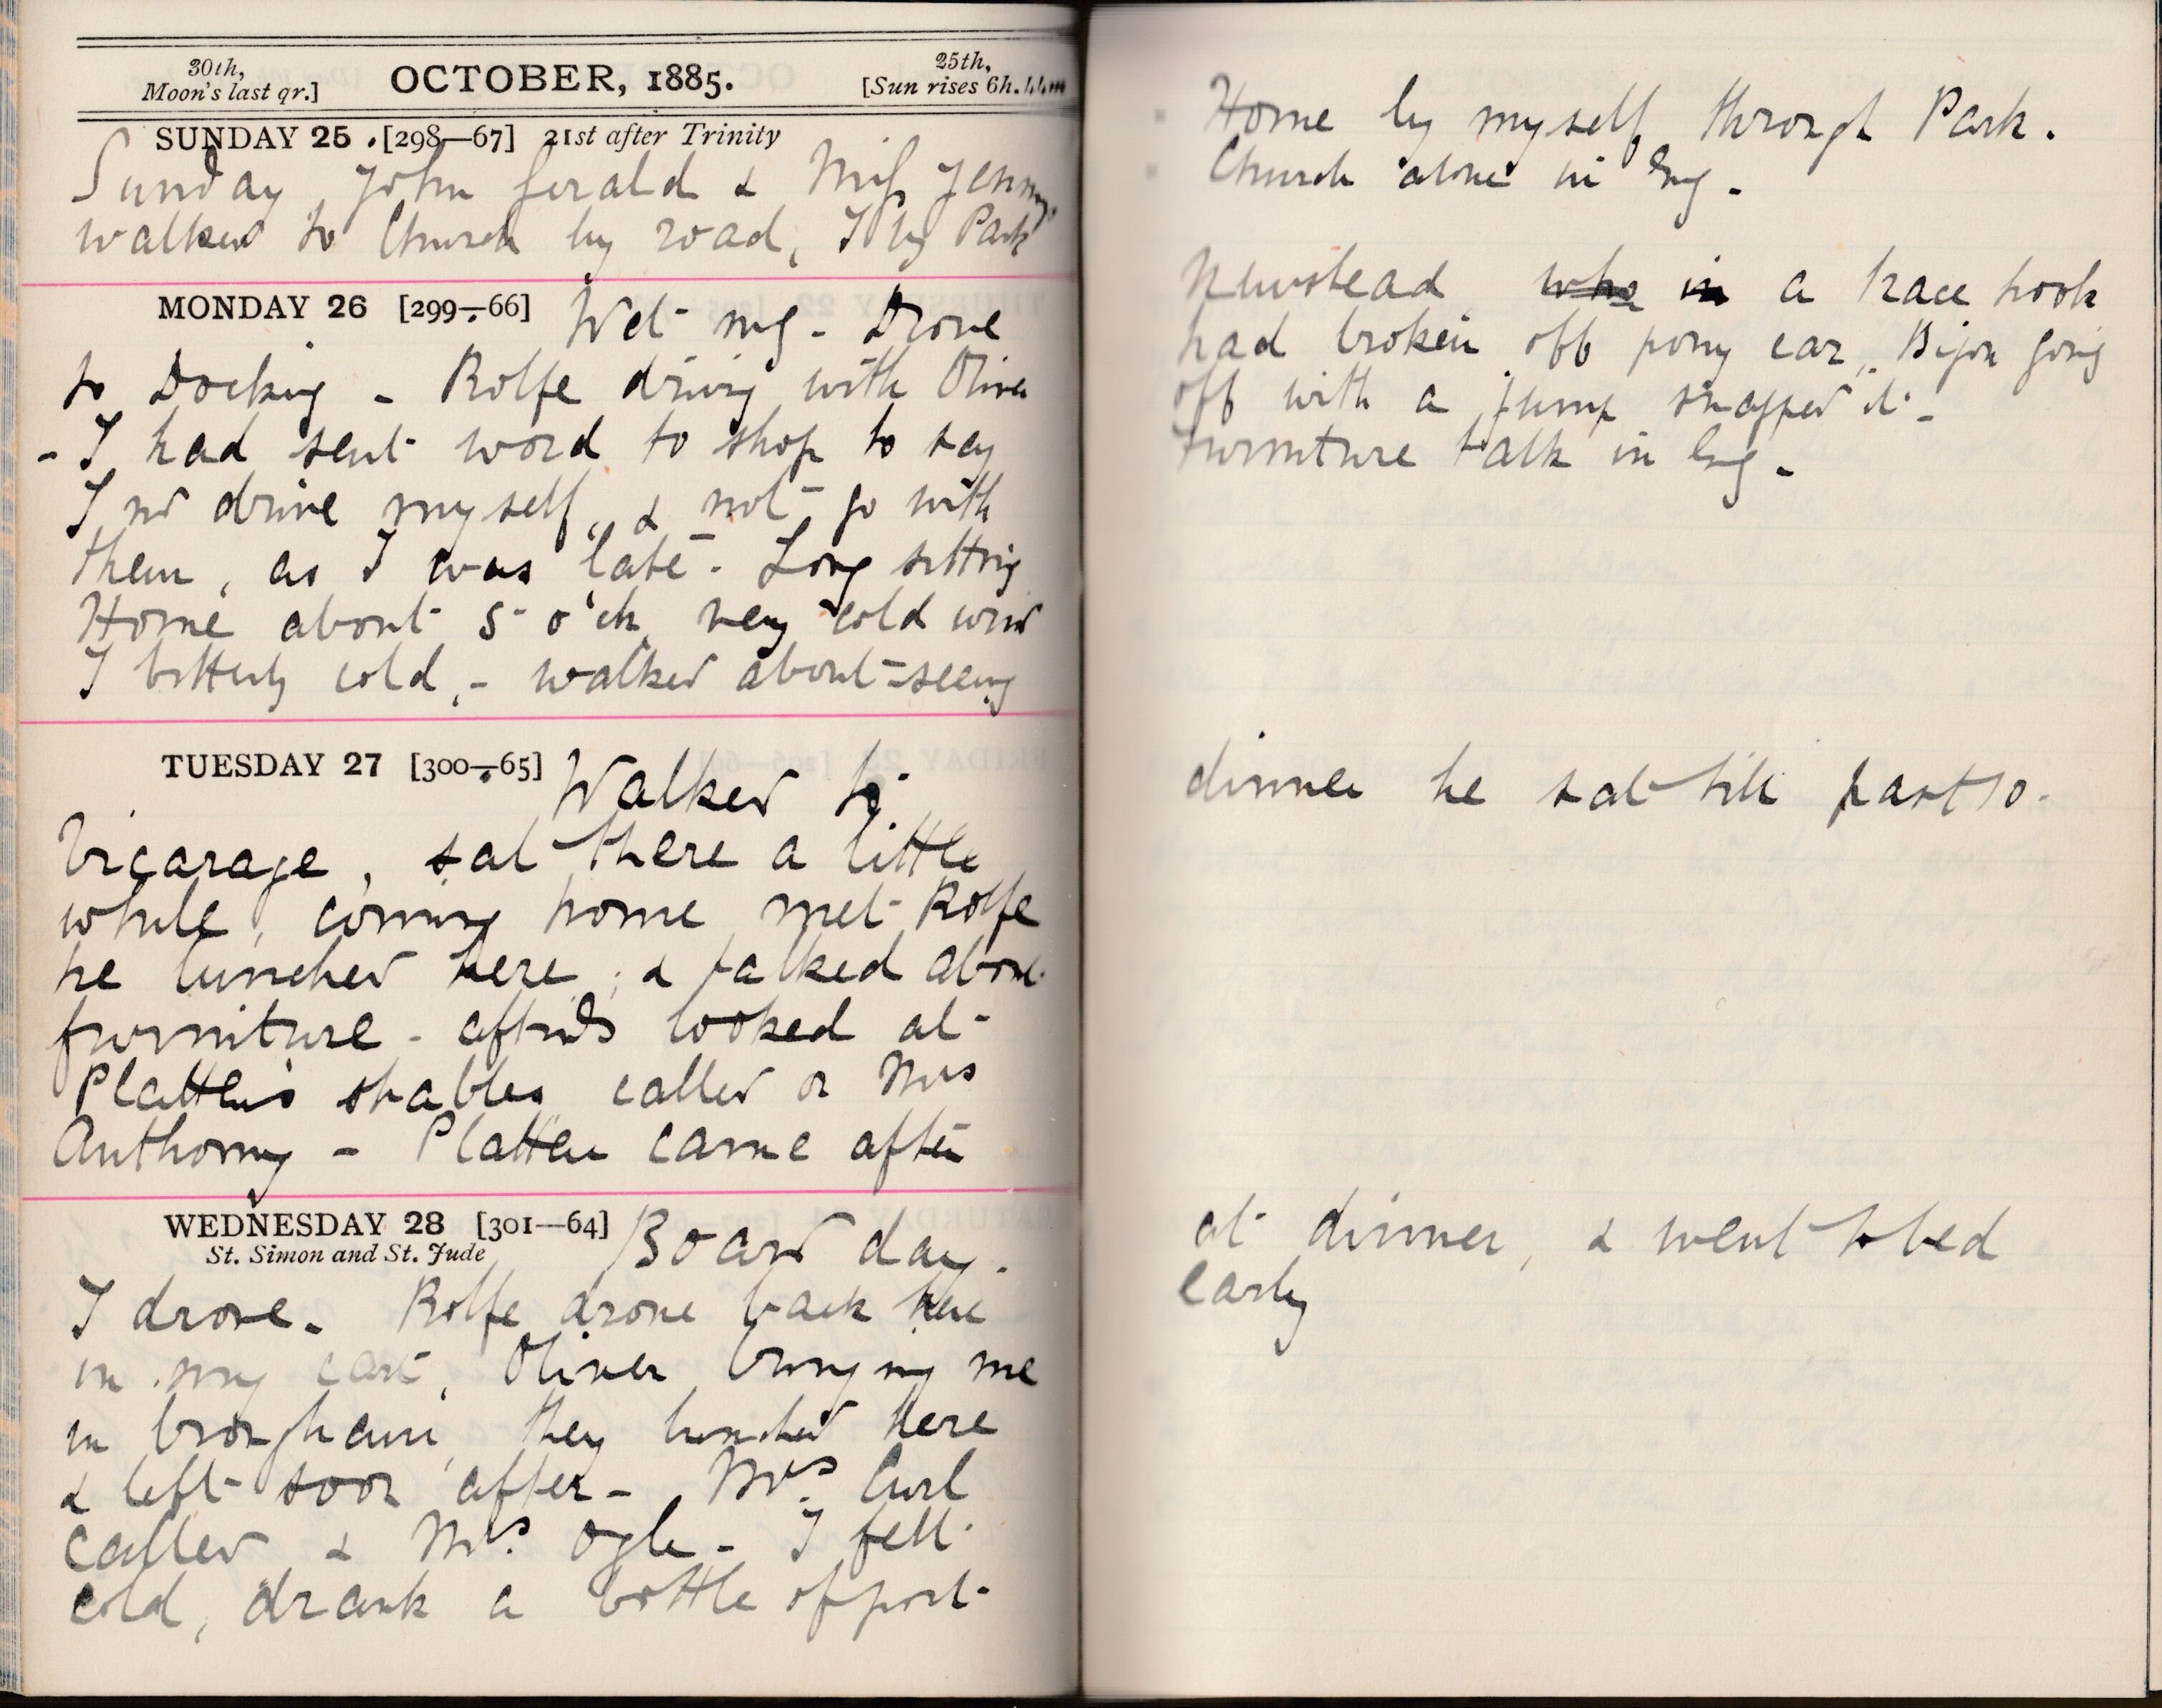 30th,
Moon's last qr.]
OCTOBER, 1885.
25th,
[Sun rises 6h.
SUNDAY 25 . [298—67] 21st after Trinity
Sunday John Gerald & Miss Jenny
walked to Church by road, I by Park
MONDAY 26 [299—66] Wet mg - Drove
to Docking - Rolfe driving with Oliver
- I had sent word to shop to say
I wd drive myself, & not go with
them, as I was late - Long sitting
Home about 5 o'ck very cold wind
I bitterly cold, - walked about - seeing
TUESDAY 27 [300—65] Walked to
Vicarage, sat there a little
while, coming home met Rolfe
he lunched here, & talked about
furniture - aftwds looked at
Platten's stables called on Mrs
Anthony - Platten came after
WEDNESDAY 28 [301—64] Board day.
St. Simon and St. Jude
I drove. Rolfe drove back here
in my cart, Oliver bringing me
in brougham, they lunched here
& left soon after - Mrs. Curl
called & Mrs. Ogle - I felt
cold, drank a bottle of port
Home by myself through Park.
Church alone in Evg -
Newstead who in a trace hook
had broken off pony car, Bijou going
off with a jump snapped it -
Furniture talk in Evg -
dinner he sat till past 10 -
at dinner, & went to bed
early